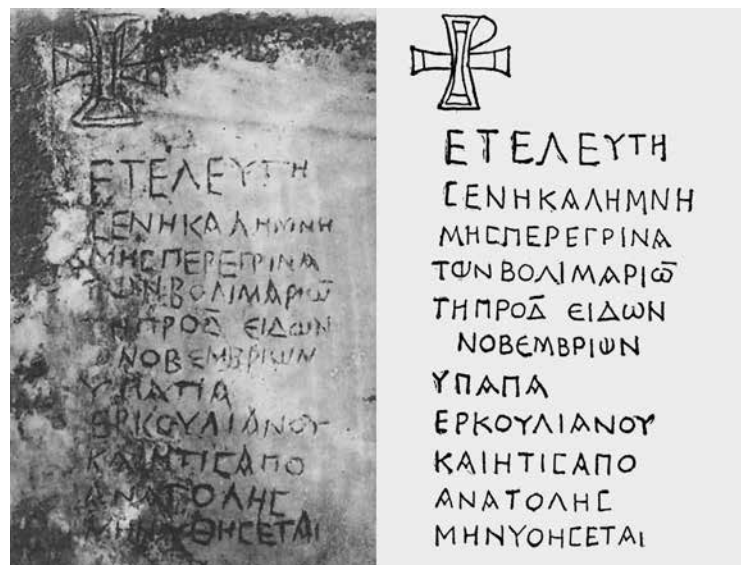 ΕΤΕΛΕΥΤΗ
ϹΕΝΗΚΑΛΗΜΝΗ
ΜΗϹΠΕΡΕΓΡΙΝΑ
ΤΩΝΒΟΛΙΜΑΡΙΩ̅
ΤΗΠΡΟΔ̅ ΕΙΔΩΝ
ΝΟΒΕΜΒΡΙΩΝ
ΥΠΑΤΙΑ
ΕΡΚΟΥΛΙΑΝΟΥ
ΚΑΙΗΤΙϹΑΠΟ
ΑΝΑΤΟΛΗϹ
ΜΗΝΥΘΗϹΕΤΑΙ
ΕΤΕΛΕΥΤΗ
ϹΕΝΗΚΑΛΗΜΝΗ
ΜΗϹΠΕΡΕΓΡΙΝΑ
ΤΩΝΒΟΛΙΜΑΡΙΩ̅
ΤΗΠΡΟΔ̅ ΕΙΔΩΝ
ΝΟΒΕΜΒΡΙΩΝ
ΥΠΑΠΑ
ΕΡΚΟΥΛΙΑΝΟΥ
ΚΑΙΗΤΙϹΑΠΟ
ΑΝΑΤΟΛΗϹ
ΜΗΝΥΟΗϹΕΤΑΙ